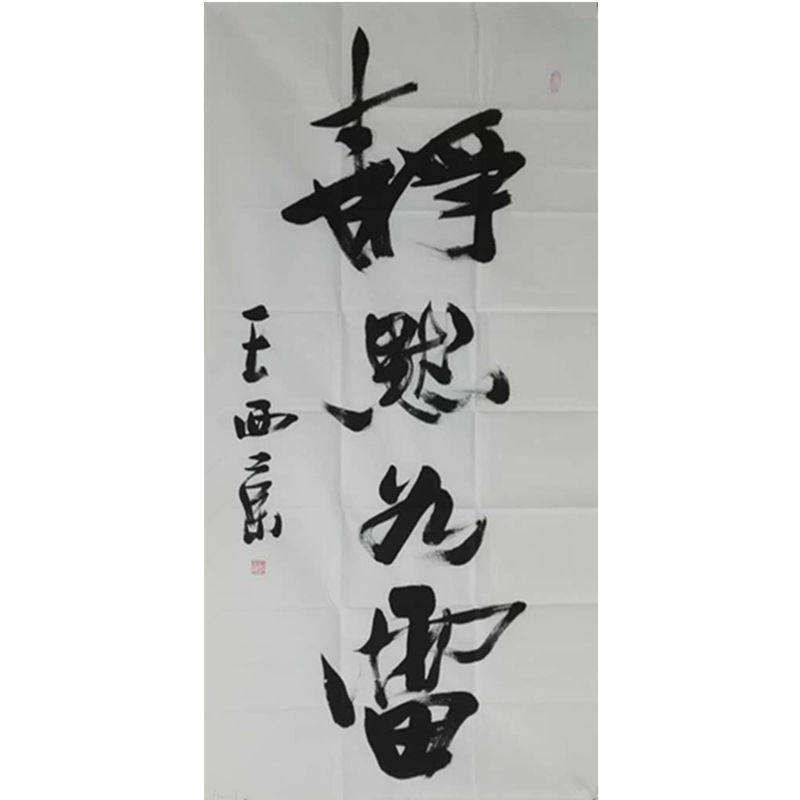 静默如雷
王西京